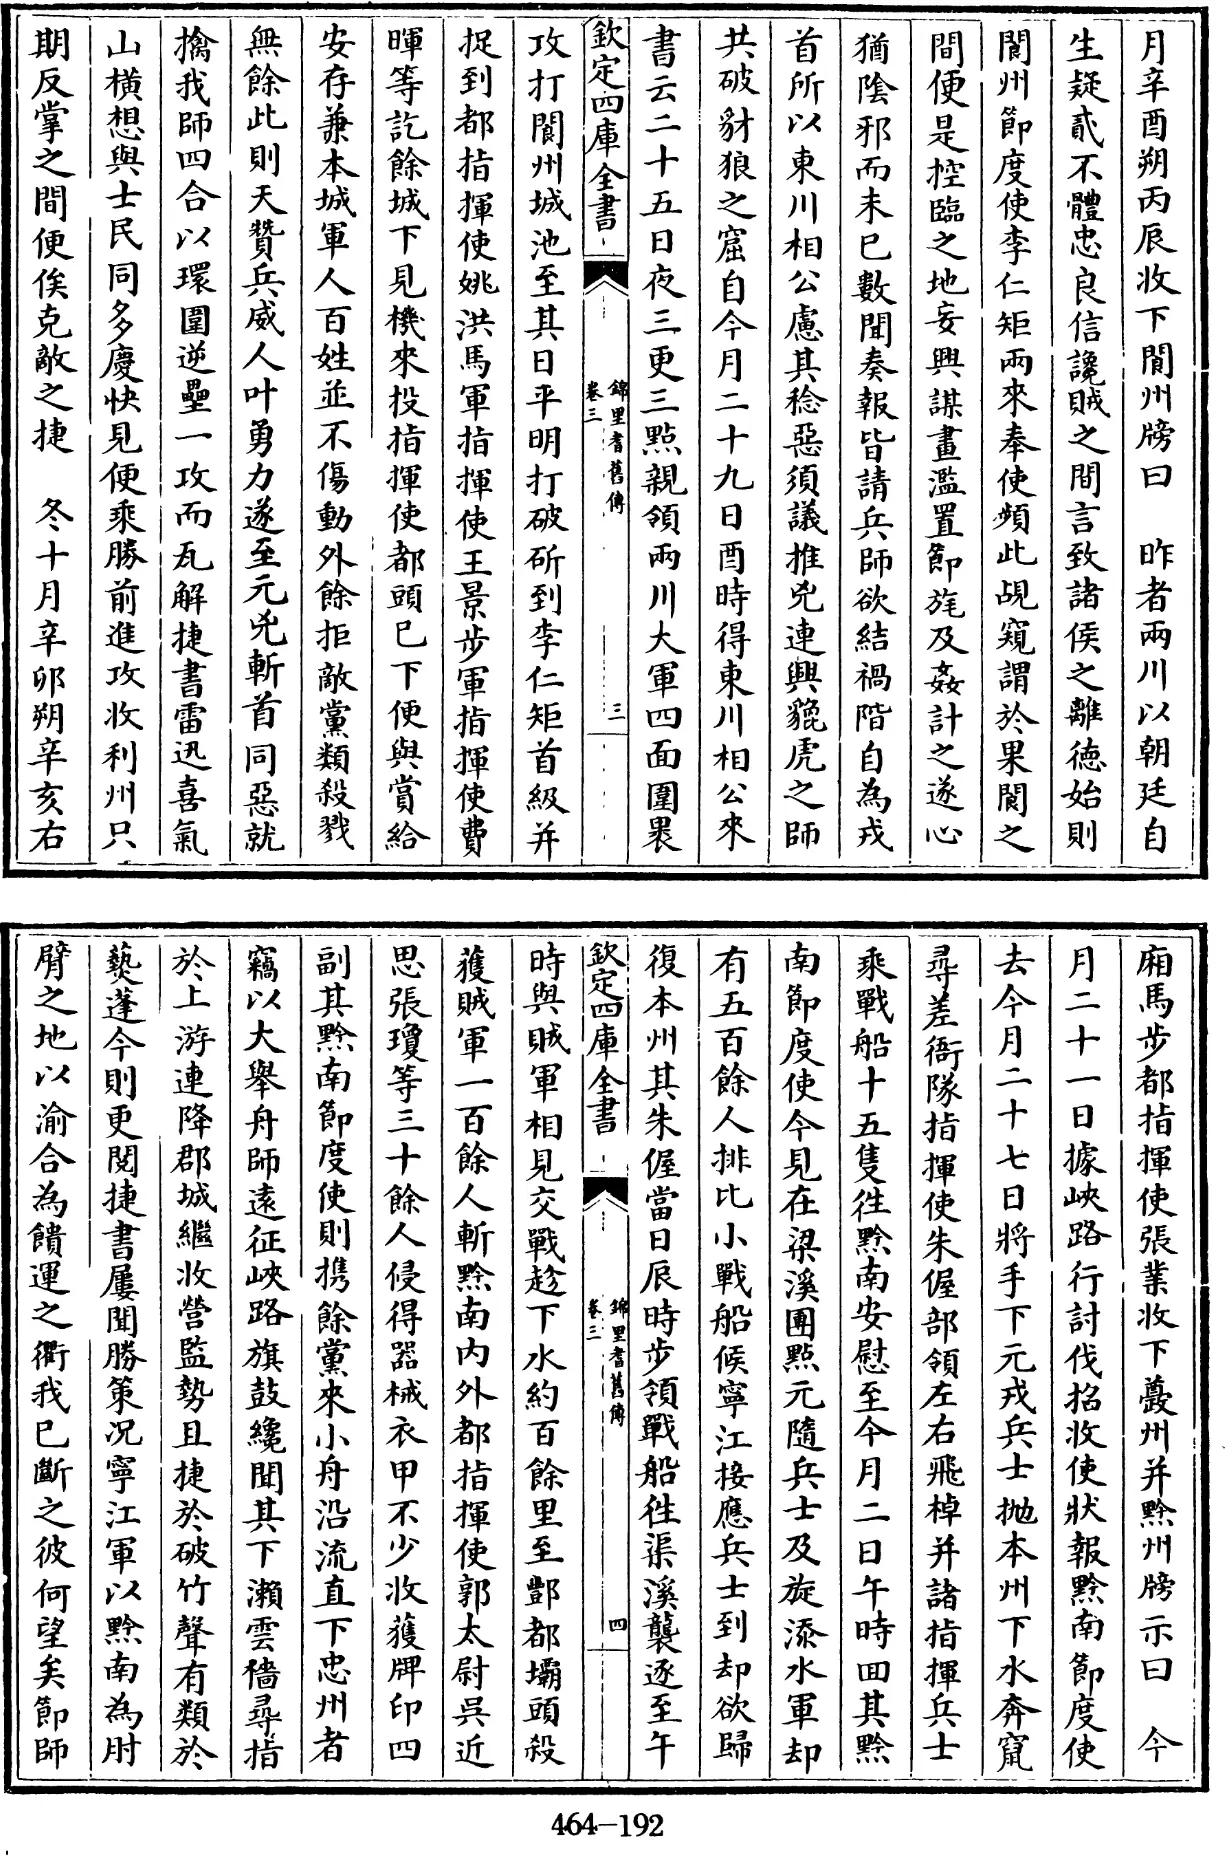 月辛酉朔丙辰收下閬州牓曰　昨者兩川以朝廷自
生疑貳不體忠良信讒賊之間言致諸侯之離德始則
閬州節度使李仁矩兩來奉使頻此覘窺謂於果閬之
間便是控臨之地妄興謀畫濫置節旄及姦計之遂心
猶陰邪而未已數聞奏報皆請兵師欲結禍階自為戎
首所以東川相公慮其稔惡須議推兇連興貔虎之師
共破豺狼之窟自今月二十九日酉時得東川相公來
書云二十五日夜三更三點親領兩川大軍四面圍裹
欽定四庫全書
錦里耆舊傳
卷三
三
攻打閬州城池至其日平明打破斫到李仁矩首級并
捉到都指揮使姚洪馬軍指揮使王景步軍指揮使費
暉等訖餘城下見機來投指揮使都頭已下便與賞給
安存兼本城軍人百姓並不傷動外餘拒敵黨類殺戮
無餘此則天贊兵威人叶勇力遂至元兇斬首同惡就
擒我師四合以環圍逆壘一攻而瓦解捷書雷迅喜氣
山橫想與士民同多慶快見便乘勝前進攻收利州只
期反掌之間便俟克敵之捷　冬十月辛卯朔辛亥右
廂馬步都指揮使張業收下夔州并黔州牓示曰　今
月二十一日據峽路行討伐招收使狀報黔南節度使
去今月二十七日將手下元戎兵士拋本州下水奔竄
尋差衙隊指揮使朱偓部領左右飛棹并諸指揮兵士
乘戰船十五隻徃黔南安慰至今月二日午時回其黔
南節度使今見在梁溪團點元隨兵士及旋添水軍却
有五百餘人排比小戰船候寧江接應兵士到却欲歸
復本州其朱偓當日辰時步領戰船徃渠溪襲逐至午
欽定四庫全書
錦里耆舊傳
卷三
四
時與賊軍相見交戰趁下水約百餘里至酆都壩頭殺
獲賊軍一百餘人斬黔南內外都指揮使郭太尉吳近
思張瓊等三十餘人侵得器械衣甲不少收獲牌印四
副其黔南節度使則携餘黨來小舟沿流直下忠州者
竊以大舉舟師遠征峽路旗鼓纔聞其下瀨雲檣尋指
於上游連降郡城繼收營監勢且捷於破竹聲有類於
爇蓬今則更閱捷書屢聞勝策况寧江軍以黔南為肘
臂之地以渝合為饋運之衢我已斷之彼何望矣節師
464-192